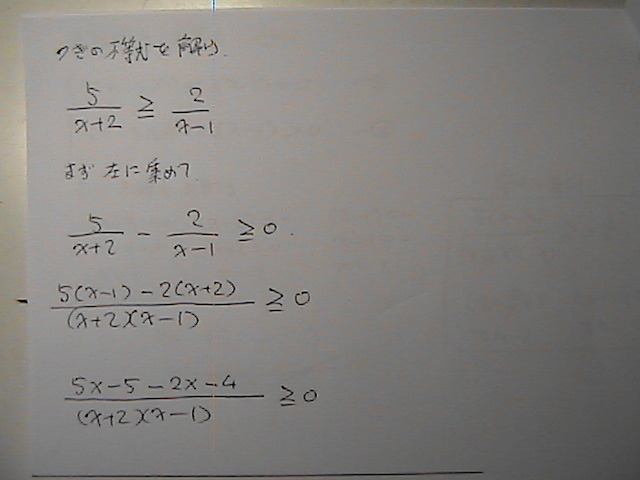 つぎの不等式を解け.
5/(x+2) ≧ 2/(x-1)
まず 左に集めて
5/(x+2) - 2/(x-1) ≧ 0.
(5(x-1) - 2(x+2))/((x+2)(x-1)) ≧ 0
(5x-5-2x-4)/((x+2)(x-1)) ≧ 0